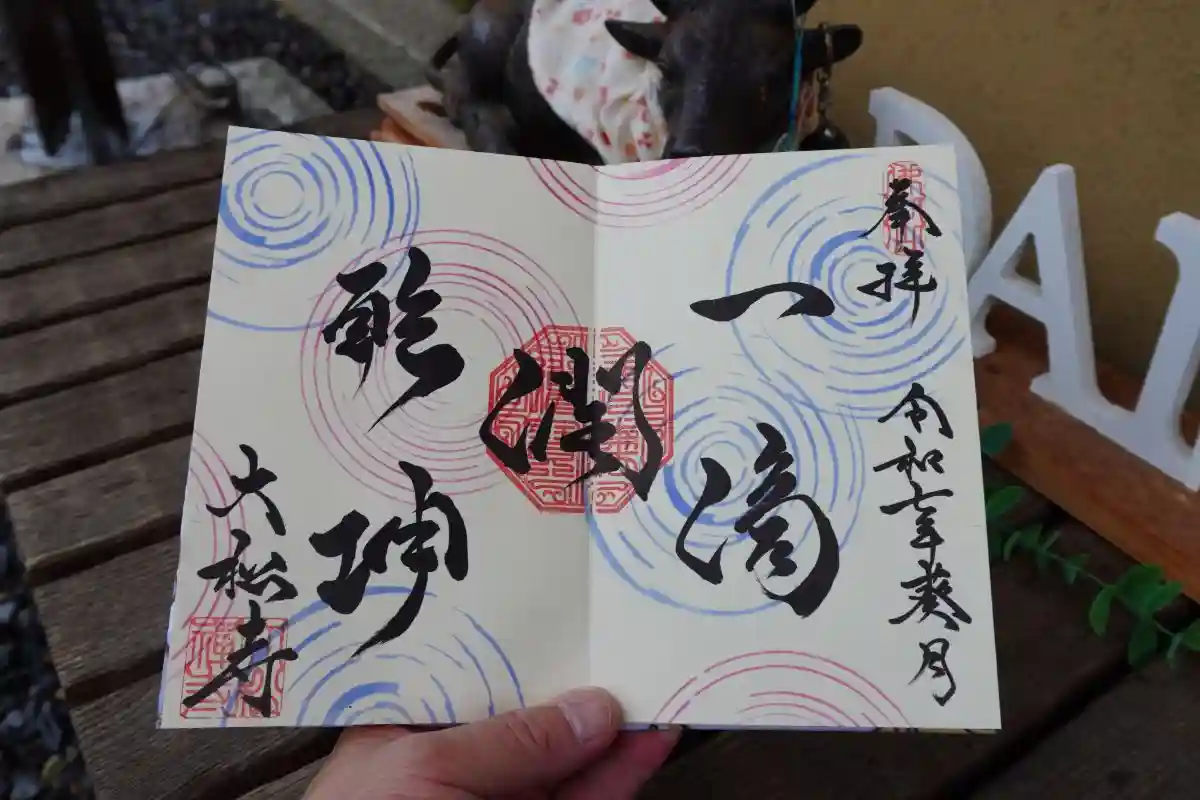 奉拝
令和七年葵月
一滴
潤
乾坤
大松寺